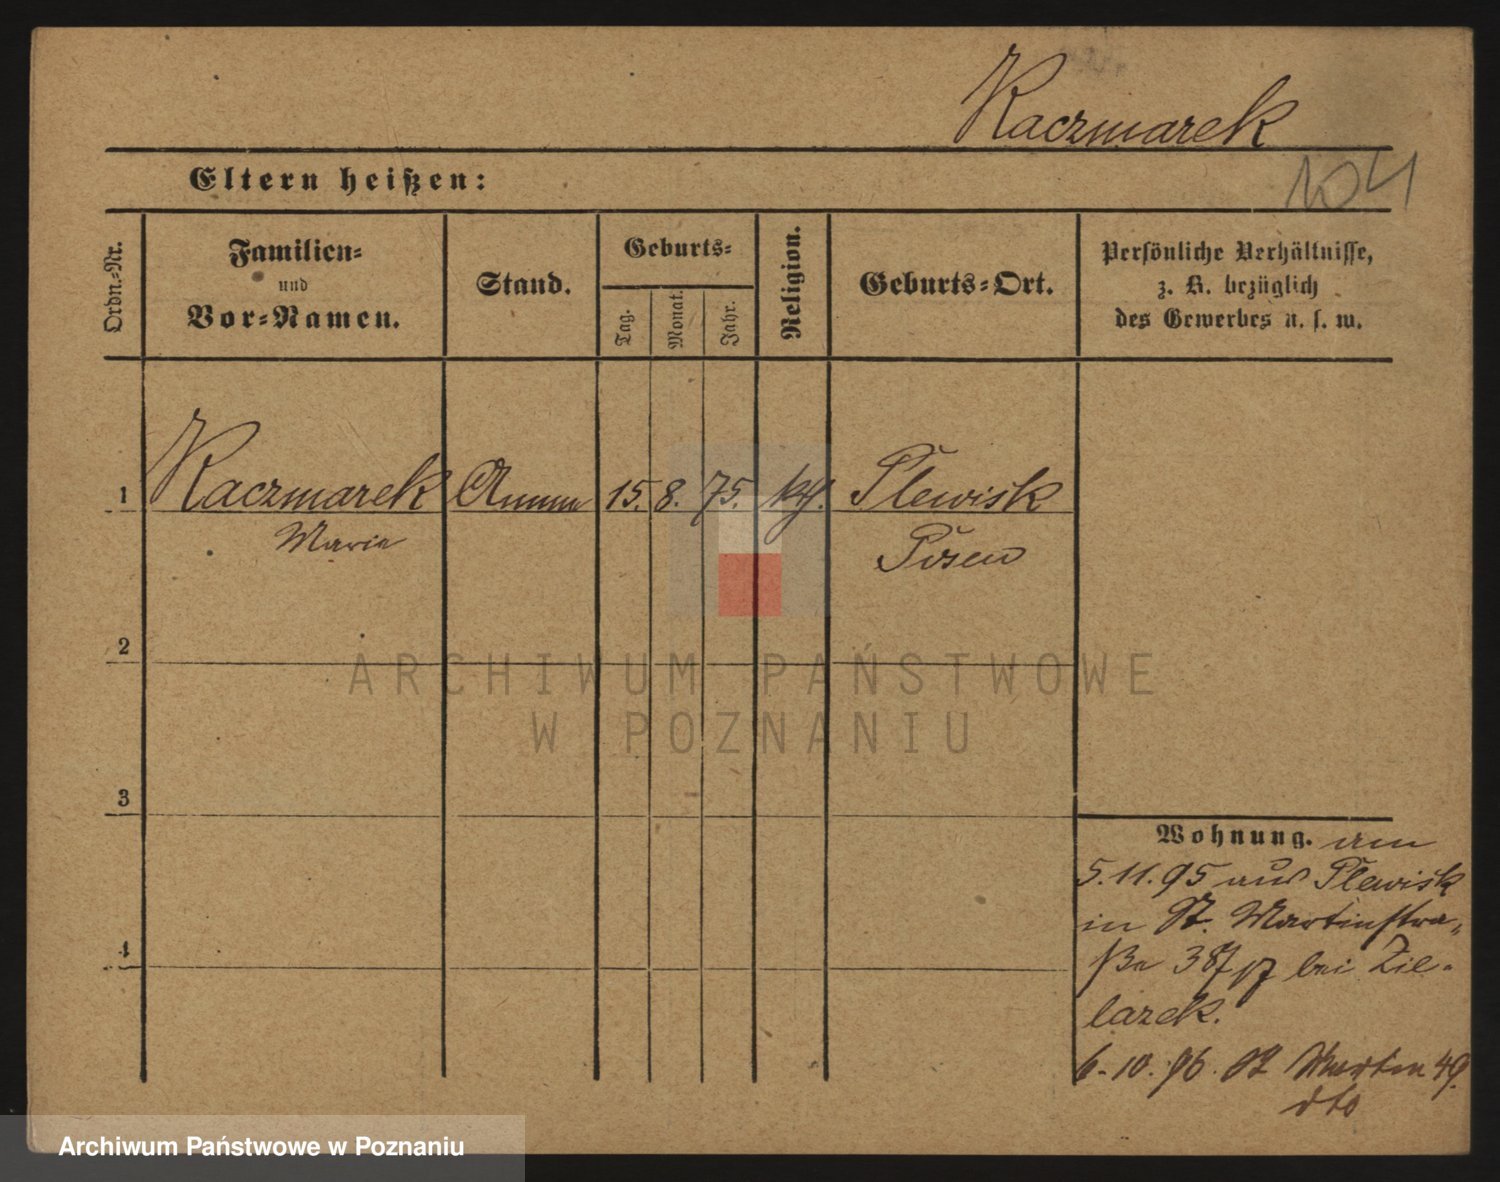 Kaczmarek
104
Eltern heißen:
Ordn.-Nr.
Familien-
und
Vor-Namen.
Stand.
Geburts-
Tag.
Monat.
Jahr.
Religion.
Geburts-Ort.
Persönliche Verhältnisse,
z. B. bezüglich
des Gewerbes u. s. w.
1 Kaczmarek Amme 15. 8. 75. kth. Plewisk
Marie Posen
2
3
4
Wohnung. am
5.11.95 aus Plewisk
in St. Martinstra-
ße bei Zie-
larek.
6.10.96. St Martin 49.
dto
ARCHIWUM PAŃSTWOWE
W POZNANIU
Archiwum Państwowe w Poznaniu